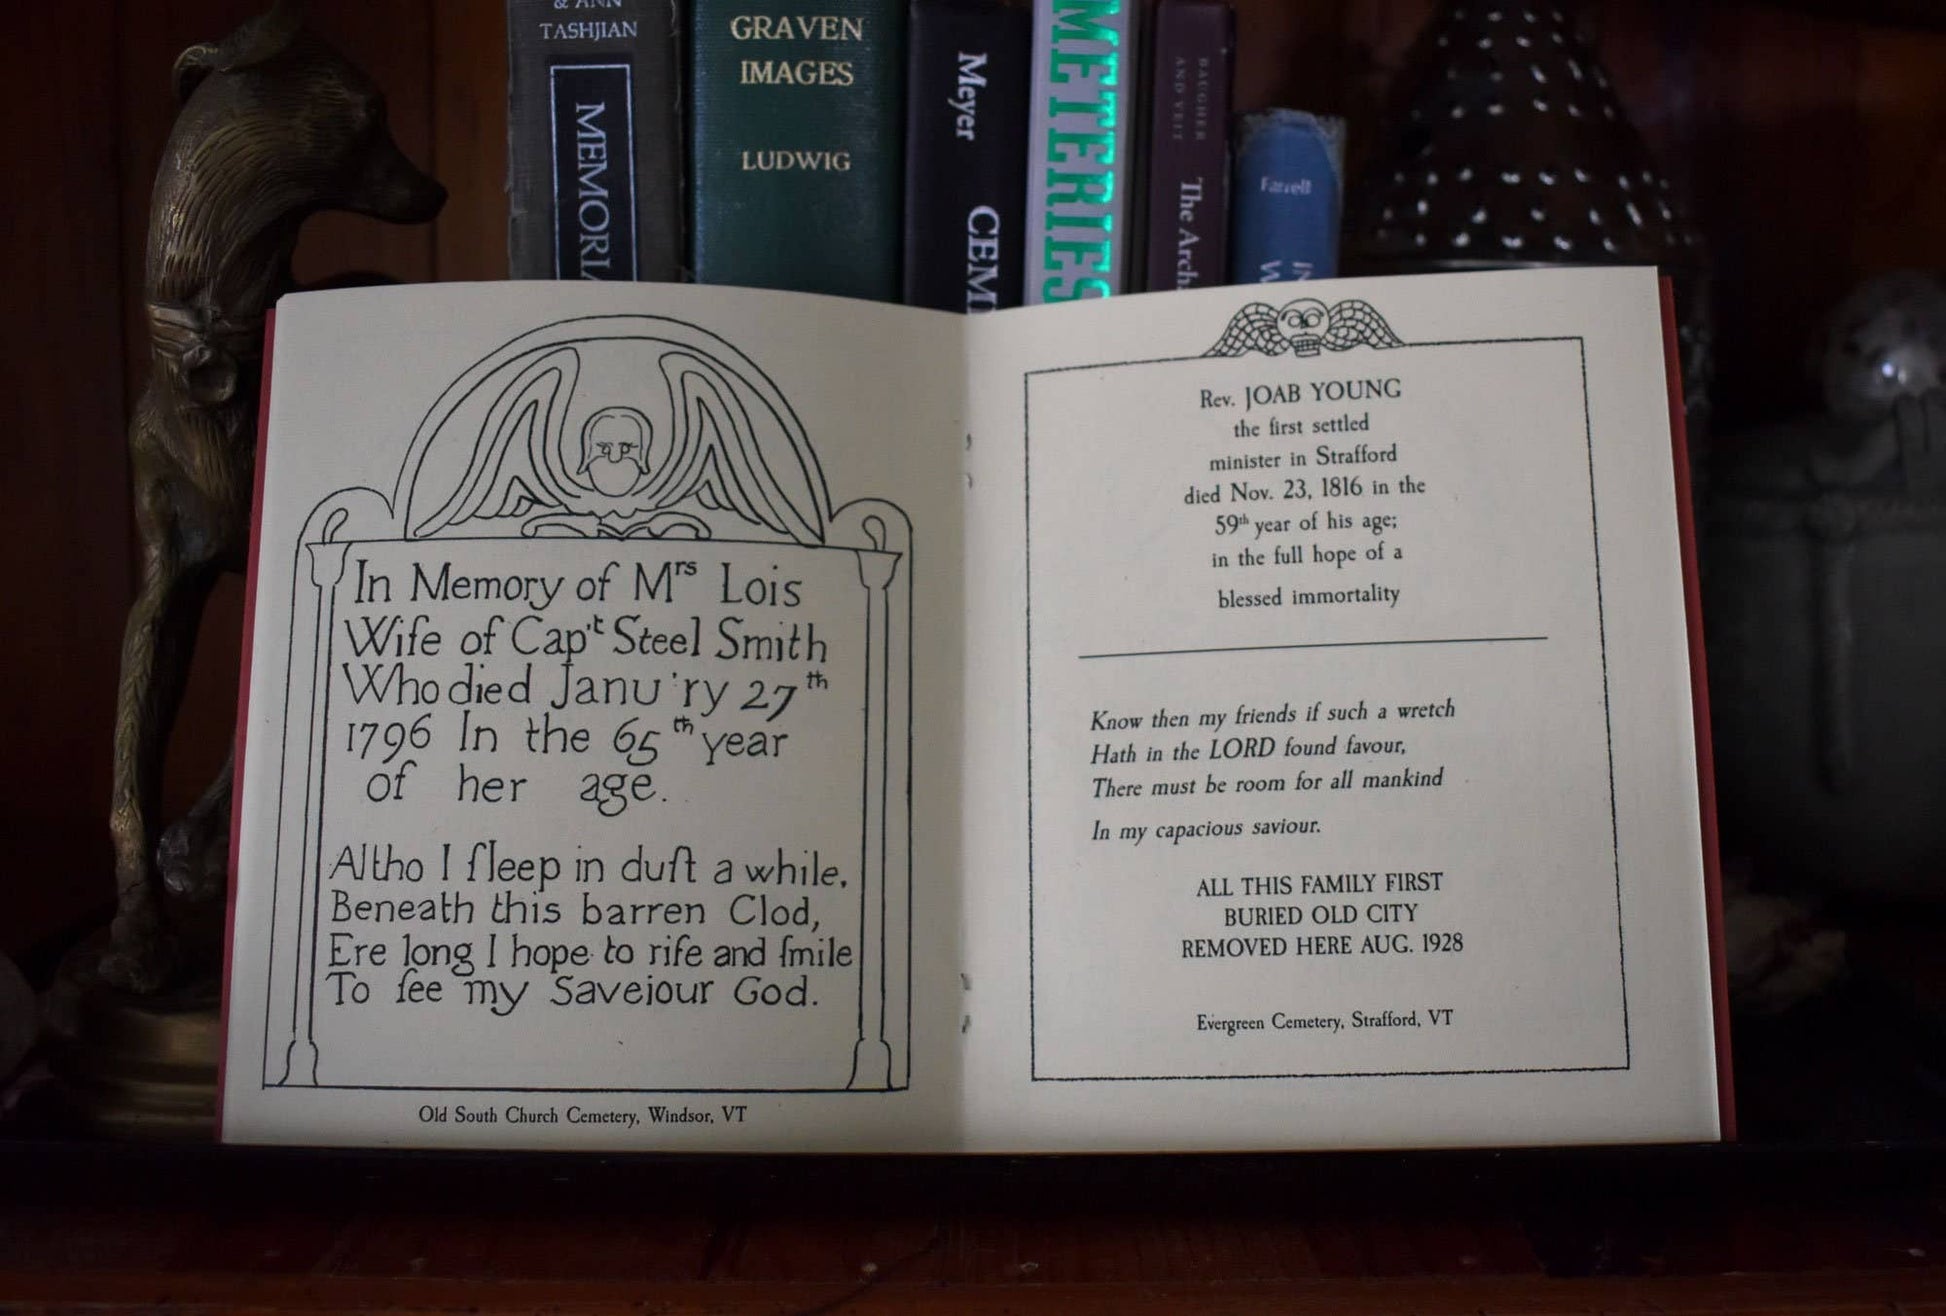 & ANN
TASHJIAN
MEMORIA
GRAVEN
IMAGES
LUDWIG
Meyer
CEM
METERIES
DAUGHER
AND VEIT
The Arch
Farrell
IN
W
In Memory of Mrs Lois
Wife of Cap't Steel Smith
Who died Janu'ry 27th
1796 In the 65th year
of her age.
Altho I ſleep in duſt a while,
Beneath this barren Clod,
Ere long I hope to riſe and ſmile
To ſee my Saveiour God.
Old South Church Cemetery, Windsor, VT
Rev. JOAB YOUNG
the first settled
minister in Strafford
died Nov. 23, 1816 in the
59th year of his age;
in the full hope of a
blessed immortality
Know then my friends if such a wretch
Hath in the LORD found favour,
There must be room for all mankind
In my capacious saviour.
ALL THIS FAMILY FIRST
BURIED OLD CITY
REMOVED HERE AUG. 1928
Evergreen Cemetery, Strafford, VT